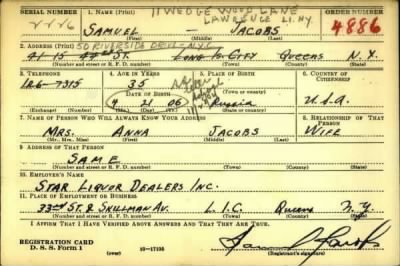 SERIAL NUMBER 1. NAME (Print) 11 WEDGE WOOD LANE ORDER NUMBER
LAWRENCE L.I. N.Y.
SAMUEL - JACOBS 4886
2. ADDRESS (Print) 50 RIVERSIDE DRIVE N.Y.C.
41-15 44th ST. LONG IS. CITY QUEENS N.Y.
(Number and street or R. F. D. number) (Town) (County) (State)
3. TELEPHONE 4. AGE IN YEARS 5. PLACE OF BIRTH 6. COUNTRY OF CITIZENSHIP
35
DATE OF BIRTH (Town or county)
7315 21 06 Russia U.S.A.
(Exchange) (Number) (Mo.) (Day) (Yr.) (State or country)
7. NAME OF PERSON WHO WILL ALWAYS KNOW YOUR ADDRESS 8. RELATIONSHIP OF THAT PERSON
MRS. ANNA JACOBS WIFE
(Mr., Mrs., Miss) (First) (Middle) (Last)
9. ADDRESS OF THAT PERSON
SAME
(Number and street or R. F. D. number) (Town) (County) (State)
10. EMPLOYER'S NAME
STAR LIQUOR DEALERS INC.
11. PLACE OF EMPLOYMENT OR BUSINESS
33rd ST. & SKILLMAN AV. L.I.C. Queens N.Y.
(Number and street or R. F. D. number) (Town) (County) (State)
I AFFIRM THAT I HAVE VERIFIED ABOVE ANSWERS AND THAT THEY ARE TRUE.
REGISTRATION CARD
D. S. S. Form 1 16-17105 (Registrant's signature)